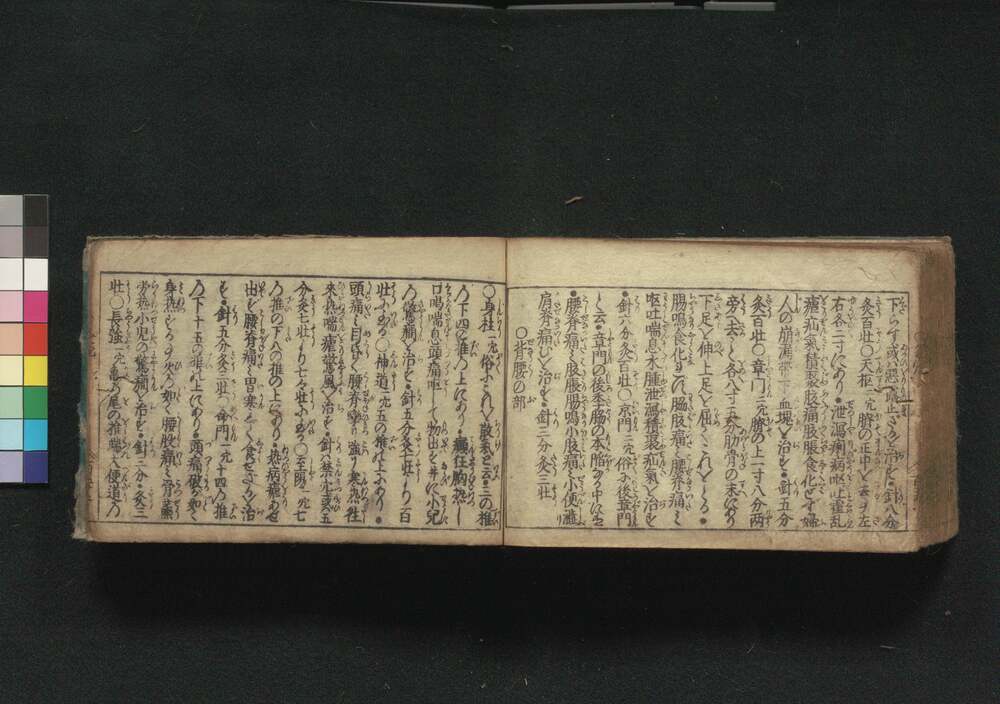 下らず或悪血止ざるを治す・針八分
灸百壮〇天枢 二穴 臍の正中を去ヿ左
右各二寸にあり・泄瀉痢病嘔吐霍乱
瘧疝氣積聚腹痛腹脹食化せず婦
人の崩漏帯下血塊を治す・針五分
灸百壮〇章門 二穴 臍の上一寸八分両
旁へ去こと各八寸五分肋骨の末にあり
下足を伸上足を屈てこれをとる・
腸鳴食化せず脇腹痛み腰脊痛み
嘔吐喘息水腫泄瀉積聚疝氣を治す
・針六分灸百壮〇京門 二穴 俗に後章門
と云・章門の後季脇の本
・腰脊痛み腹脹腸鳴小腹痛小便澁
肩脊痛むを治す・針三分灸三壮
〇背腰の部
〇身柱 一穴 俗にこれを散氣と云・三の椎
の下四の椎の上にあり・癲狂胸熱し
口喝喘息頭痛嘔して物出ず并に小兒
の驚癇を治す・針五分灸七壮より二百
壮にいたる〇神道 一穴 五の椎の上にあり・
頭痛み目
来熱喘瘧驚風を治す・針を禁ず
分灸七壮より七々壮にいたる〇至陽 一穴 七
の椎の下八の椎の上にあり・熱病
出ず腰脊痛み胃寒えて食せざるを治
す・針五分灸三壮〇命門 一穴 十四の椎
の下十五の椎の上にあり・頭痛み破るが如く
身熱すること火の如く腰腹痛み骨蒸
労熱小児の驚癇を治す・針三分・灸三
壮〇長強 一穴 亀の尾の椎の端へ便道の